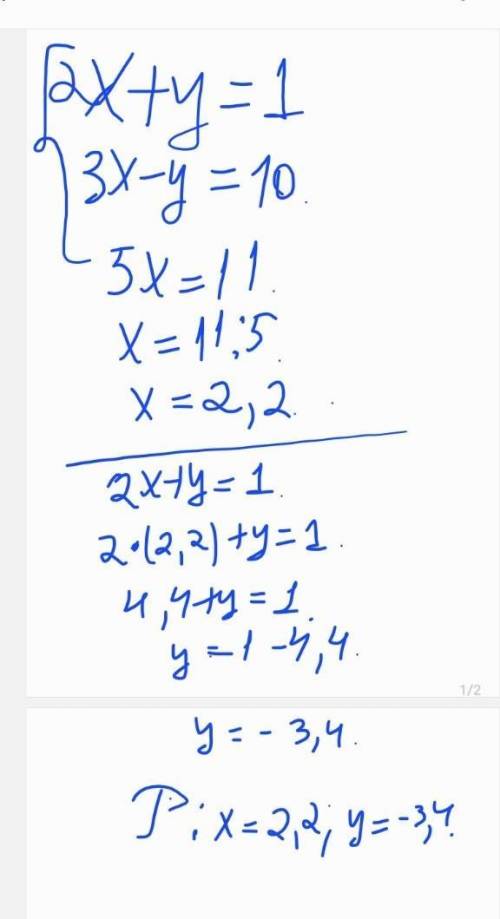 2x+y=1
3x-y=10.
5x=11.
x=11:5.
x=2,2.
2x+y=1.
2•(2,2)+y=1.
4,4+y=1.
y=1-4,4.
1/2
y=-3,4.
P: x=2,2; y=-3,4.